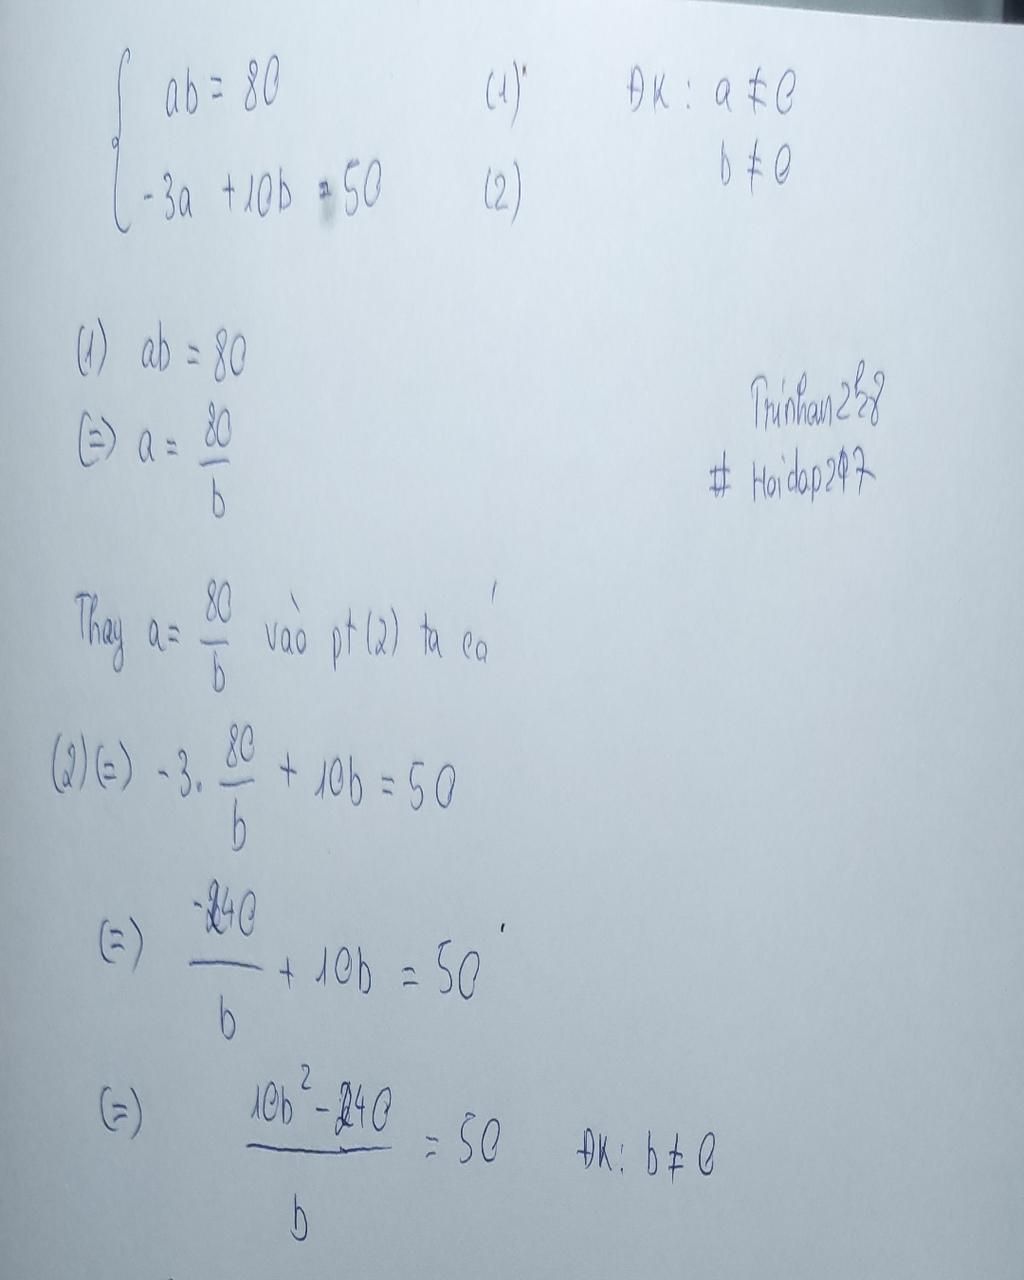 ab = 80 (1) ĐK: a ≠ 0
-3a + 10b = 50 (2) b ≠ 0
(1) ab = 80
(=) a = 80/b
# Hoidap247
Thay a = 80/b vào pt (2) ta có
(2) (=) -3. 80/b + 10b = 50
(=) -240/b + 10b = 50
(=) (10b² - 240)/b = 50 ĐK: b ≠ 0